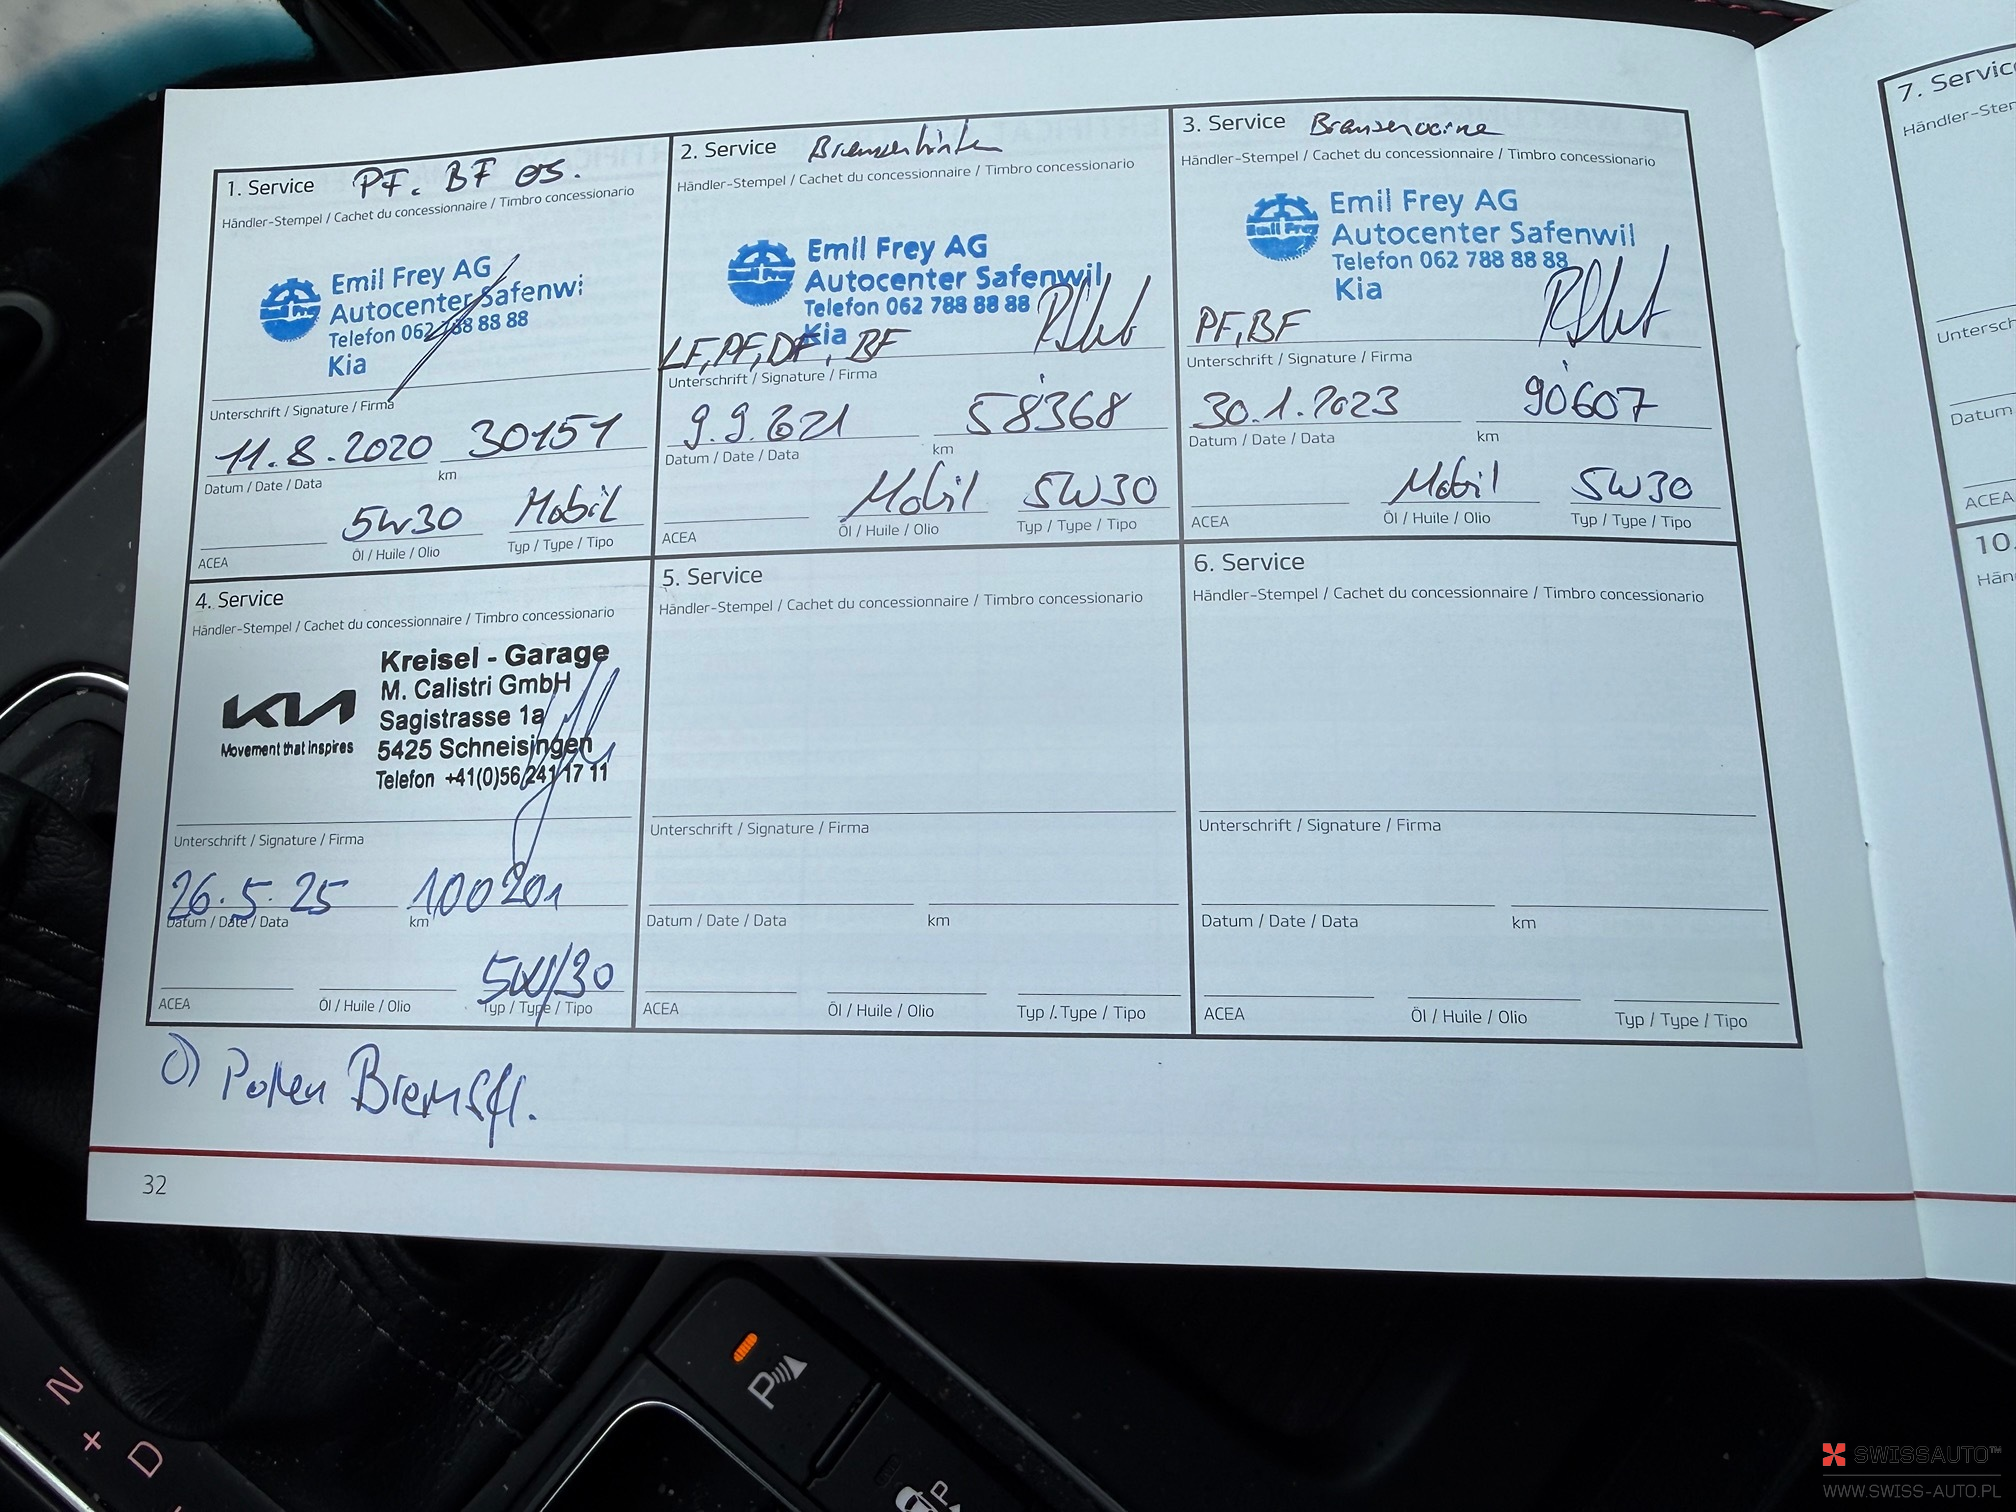 1. Service PF. BF
Händler-Stempel / Cachet du concessionnaire / Timbro concessionario
Emil Frey
Emil Frey AG
Autocenter Safenwi
Telefon 062 788 88 88
Kia
Unterschrift / Signature / Firma
11.8.2020 30151
Datum / Date / Data km
5W30 Mobil
ACEA Öl / Huile / Olio Typ / Type / Tipo
2. Service Bremsen hinten
Händler-Stempel / Cachet du concessionnaire / Timbro concessionario
Emil Frey
Emil Frey AG
Autocenter Safenwil
Telefon 062 788 88 88
Kia
LF, PF, DF, BF
Unterschrift / Signature / Firma
9.9.2021 58'368
Datum / Date / Data km
Mobil 5W30
ACEA Öl / Huile / Olio Typ / Type / Tipo
3. Service Bremsen vorne
Händler-Stempel / Cachet du concessionnaire / Timbro concessionario
Emil Frey
Emil Frey AG
Autocenter Safenwil
Telefon 062 788 88 88
Kia
PF, BF
Unterschrift / Signature / Firma
30.1.2023 90'607
Datum / Date / Data km
Mobil 5W30
ACEA Öl / Huile / Olio Typ / Type / Tipo
4. Service
Händler-Stempel / Cachet du concessionnaire / Timbro concessionario
KIA
Movement that inspires
Kreisel - Garage
M. Calistri GmbH
Sagistrasse 1a
5425 Schneisingen
Telefon +41(0)56 241 17 11
Unterschrift / Signature / Firma
26.5.25 100201
Datum / Date / Data km
5W/30
ACEA Öl / Huile / Olio Typ / Type / Tipo
5. Service
Händler-Stempel / Cachet du concessionnaire / Timbro concessionario
Unterschrift / Signature / Firma
Datum / Date / Data km
ACEA Öl / Huile / Olio Typ / Type / Tipo
6. Service
Händler-Stempel / Cachet du concessionnaire / Timbro concessionario
Unterschrift / Signature / Firma
Datum / Date / Data km
ACEA Öl / Huile / Olio Typ / Type / Tipo
Pollen Bremsfl.
32
7. Servic
Händler-Ster
Untersch
Datum
ACEA
10.
Hän
N
+
D
P
P
SWISSAUTO™
WWW.SWISS-AUTO.PL